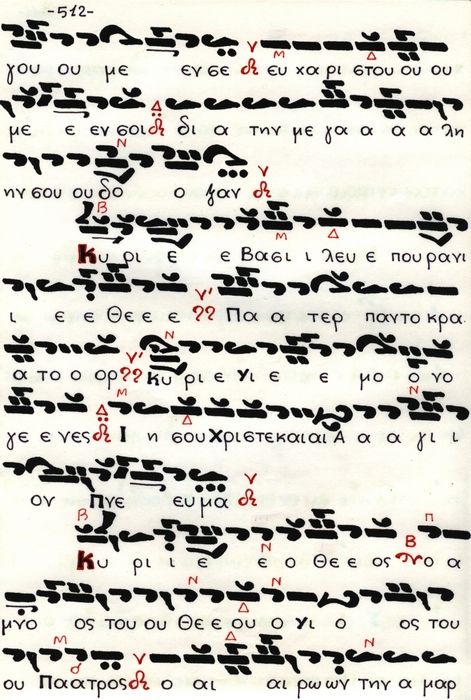 -512-
γου ου με εν σε ευ χα ρι στου ου ου
με ε εν σοι δι α την με γα α α α λη
ην σου ου δο ο ξαν
Κυ ρι ε ε Βα σι ι λευ ε που ρα νι
ι ε ε Θε ε ε Πα α τερ παν το κρα
α το ο ορ Κυ ρι ε Υι ε ε ε μο ο νο
γε ε νες Ι η σου Χρι στε και αι Α α α γι ι
ον Πνε ευ μα
Κυ ρι ι ε ε ο Θε ε ος ο α
μνο ος του ου Θε ε ου ο Υι ο ος του
ου Πα α τρος ο αι αι ρω ων την α μαρ